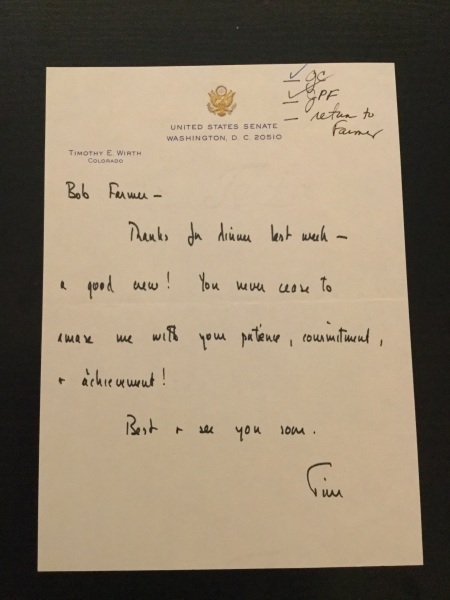 ✓ GC
✓ JPF
— return to
Farmer
UNITED STATES SENATE
WASHINGTON, D. C. 20510
TIMOTHY E. WIRTH
COLORADO
Bob Farmer –
Thanks for dinner last week –
a good crew! You never cease to
amaze me with your patience, commitment,
+ achievement!
Best + see you soon.
Tim